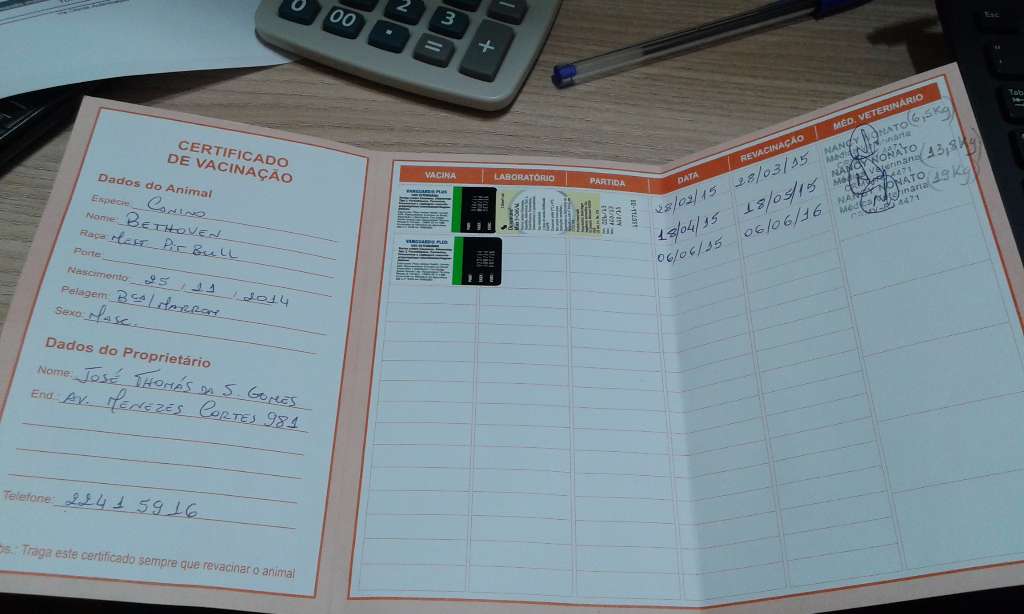 0
00
2
3
.
=
+
−
Esc
Tab
CERTIFICADO
DE VACINAÇÃO
Dados do Animal
Espécie: Canino
Nome: BETHOVEN
Raça: MEST. PIT BULL
Porte:
Nascimento: 25 , 11 , 2014
Pelagem: BCA/MARROM
Sexo: MASC.
Dados do Proprietário
Nome: JOSÉ THOMÁS DA S. GOMES
End.: AV. MENEZES CORTES 981
Telefone: 2241 5916
bs.: Traga este certificado sempre que revacinar o animal
VACINA LABORATÓRIO PARTIDA DATA REVACINAÇÃO MÉD. VETERINÁRIO
VANGUARD® PLUS 28/02/15 28/03/15 NANCY NONATO (6,5kg)
18/04/15 18/05/15 NONATO (13,8kg)
VANGUARD® PLUS 06/06/15 06/06/16 NONATO (19kg)
4471